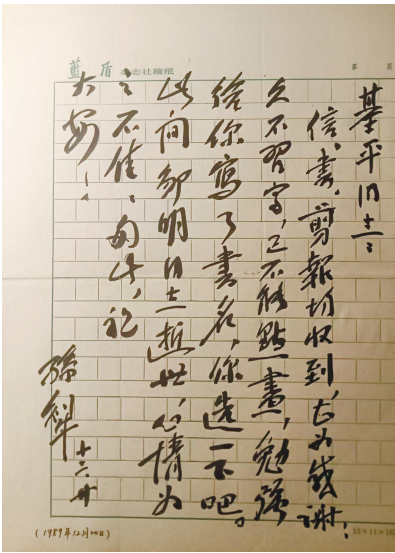 藍盾 杂志社稿纸
基平同志:
信、書、剪報均收到,甚为感谢!
久不習字,已不能點畫,勉强
给你寫了書名,你选一下吧。
此间邹明同志逝世,心情为
之不佳。匆此,祝
大安!
孫犁 十二、廿
(1989年12月20日)